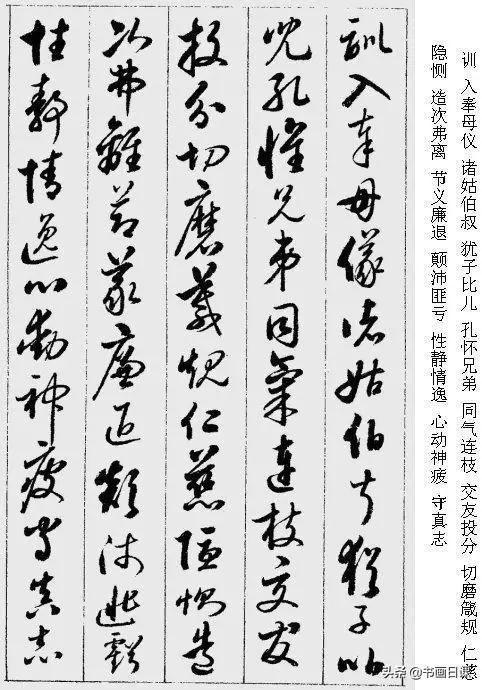 训 入奉母仪 诸姑伯叔 犹子比儿 孔怀兄弟 同气连枝 交友投分 切磨箴规 仁慈
隐恻 造次弗离 节义廉退 颠沛匪亏 性静情逸 心动神疲 守真志
訓入奉母儀諸姑伯叔猶子比
兒孔懷兄弟同氣連枝交友
投分切磨箴規仁慈隱惻造
次弗離節義廉退顛沛匪虧
性靜情逸心動神疲守真志
头条 @书画日